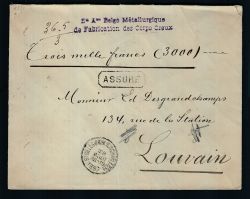 Sté Ame Belge Métallurgique
de Fabrication des Corps Creux
26.5
Trois mille francs (3000)
ASSURÉ
Monsieur Ed Desgrandchamps
134, rue de la Station
Louvain